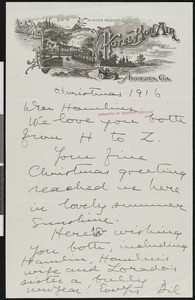 WINTER RESORT
HOTEL BON AIR
AUGUSTA, GA.
Christmas 1916
Dear Hamlins:
We love you both
from H to Z.
Your fine
Christmas greeting
reached us here
in lovely summer
sunshine.
Here's wishing
you both, including
Hamlin, Hamlin's
wife and Zorado's
sister a bully